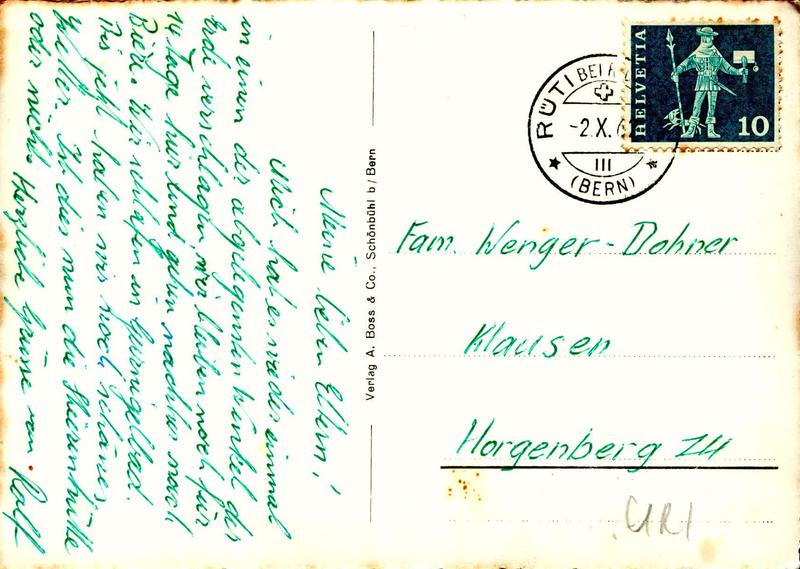 Meine lieben Eltern!
Mich hat es wieder einmal
in einen der abgelegensten Winkel der
Erde verschlagen, wir bleiben noch für
14 Tage hier und gehen nachher nach
Wir schlafen in Gurnigelbad.
Bis jetzt haben wir noch schönes
Wetter. Ist das nun die Stierenhütte
oder nicht? Herzliche Grüsse von Ralf
Verlag A. Boss & Co., Schönbühl b/Bern
RÜTI BEI
-2.X.6
III
(BERN)
HELVETIA
10
Fam. Wenger-Dohner
Klausen
Horgenberg ZH
URI